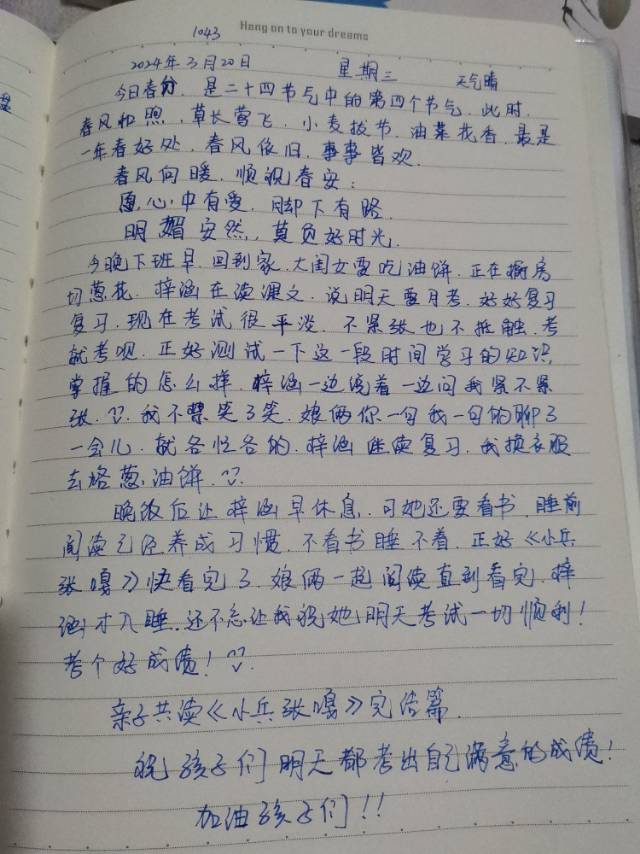 Hang on to your dreams
1043
2024年3月20日 星期三 天气晴
今日春分，是二十四节气中的第四个节气，此时，
春风和煦，草长莺飞，小麦拔节，油菜花香，最是
一年春好处，春风依旧，事事皆欢，
春风向暖，顺祝春安：
愿，心中有爱，脚下有路，
明媚安然，莫负好时光，
今晚下班早，回到家，大闺女要吃油饼，正在橱房
切葱花，梓涵在读课文，说明天要月考，好好复习
复习，现在考试很平淡，不紧张也不抵触，考
就考呗，正好测试一下这一段时间学习的知识
掌握的怎么样，梓涵一边说着一边问我紧不紧
张，我不禁笑了笑，娘俩你一句我一句的聊了
一会儿，就各忙各的，梓涵继续复习，我换衣服
去烙葱油饼，
晚饭后让梓涵早休息，可她还要看书，睡前
阅读已经养成习惯，不看书睡不着，正好《小兵
张嘎》快看完了，娘俩一起阅读直到看完，梓
涵才入睡，还不忘让我祝她明天考试一切顺利！
考个好成绩！
亲子共读《小兵张嘎》完结篇，
祝孩子们明天都考出自己满意的成绩！
加油孩子们！！